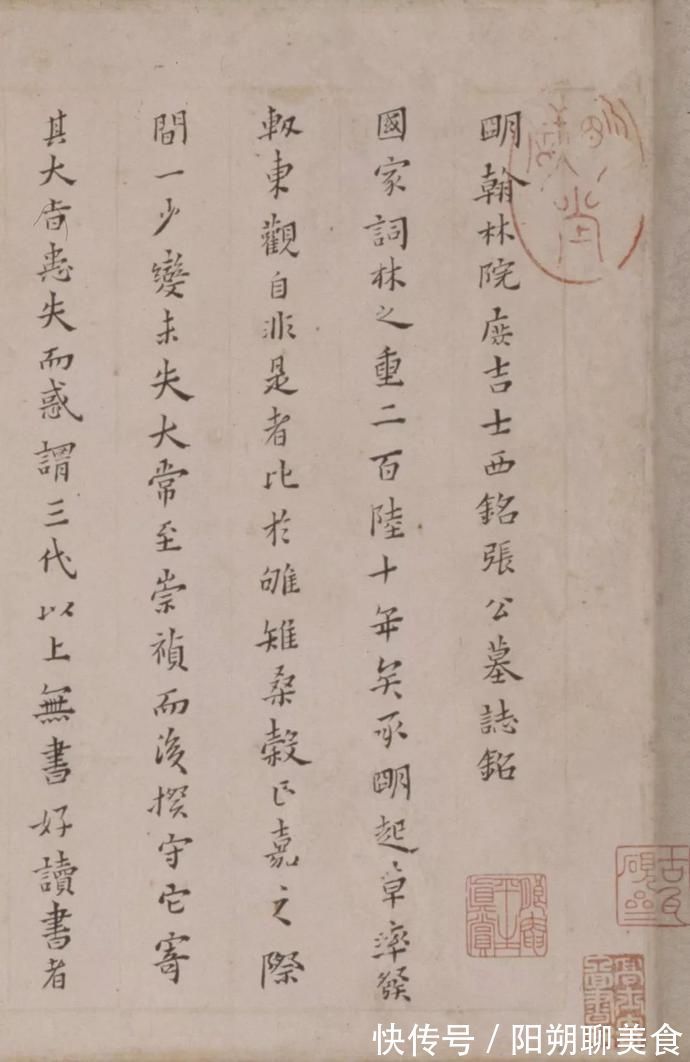 明翰林院庶吉士西銘張公墓誌銘
國家詞林之重二百陸十年矣承明起草率發
軔東觀自非是者比於雊雉桑穀正嘉之際
間一少變未失大常至崇禎而後揆守它寄
其大者患失而惑謂三代以上無書好讀書者
快传号 / 阳朔聊美食